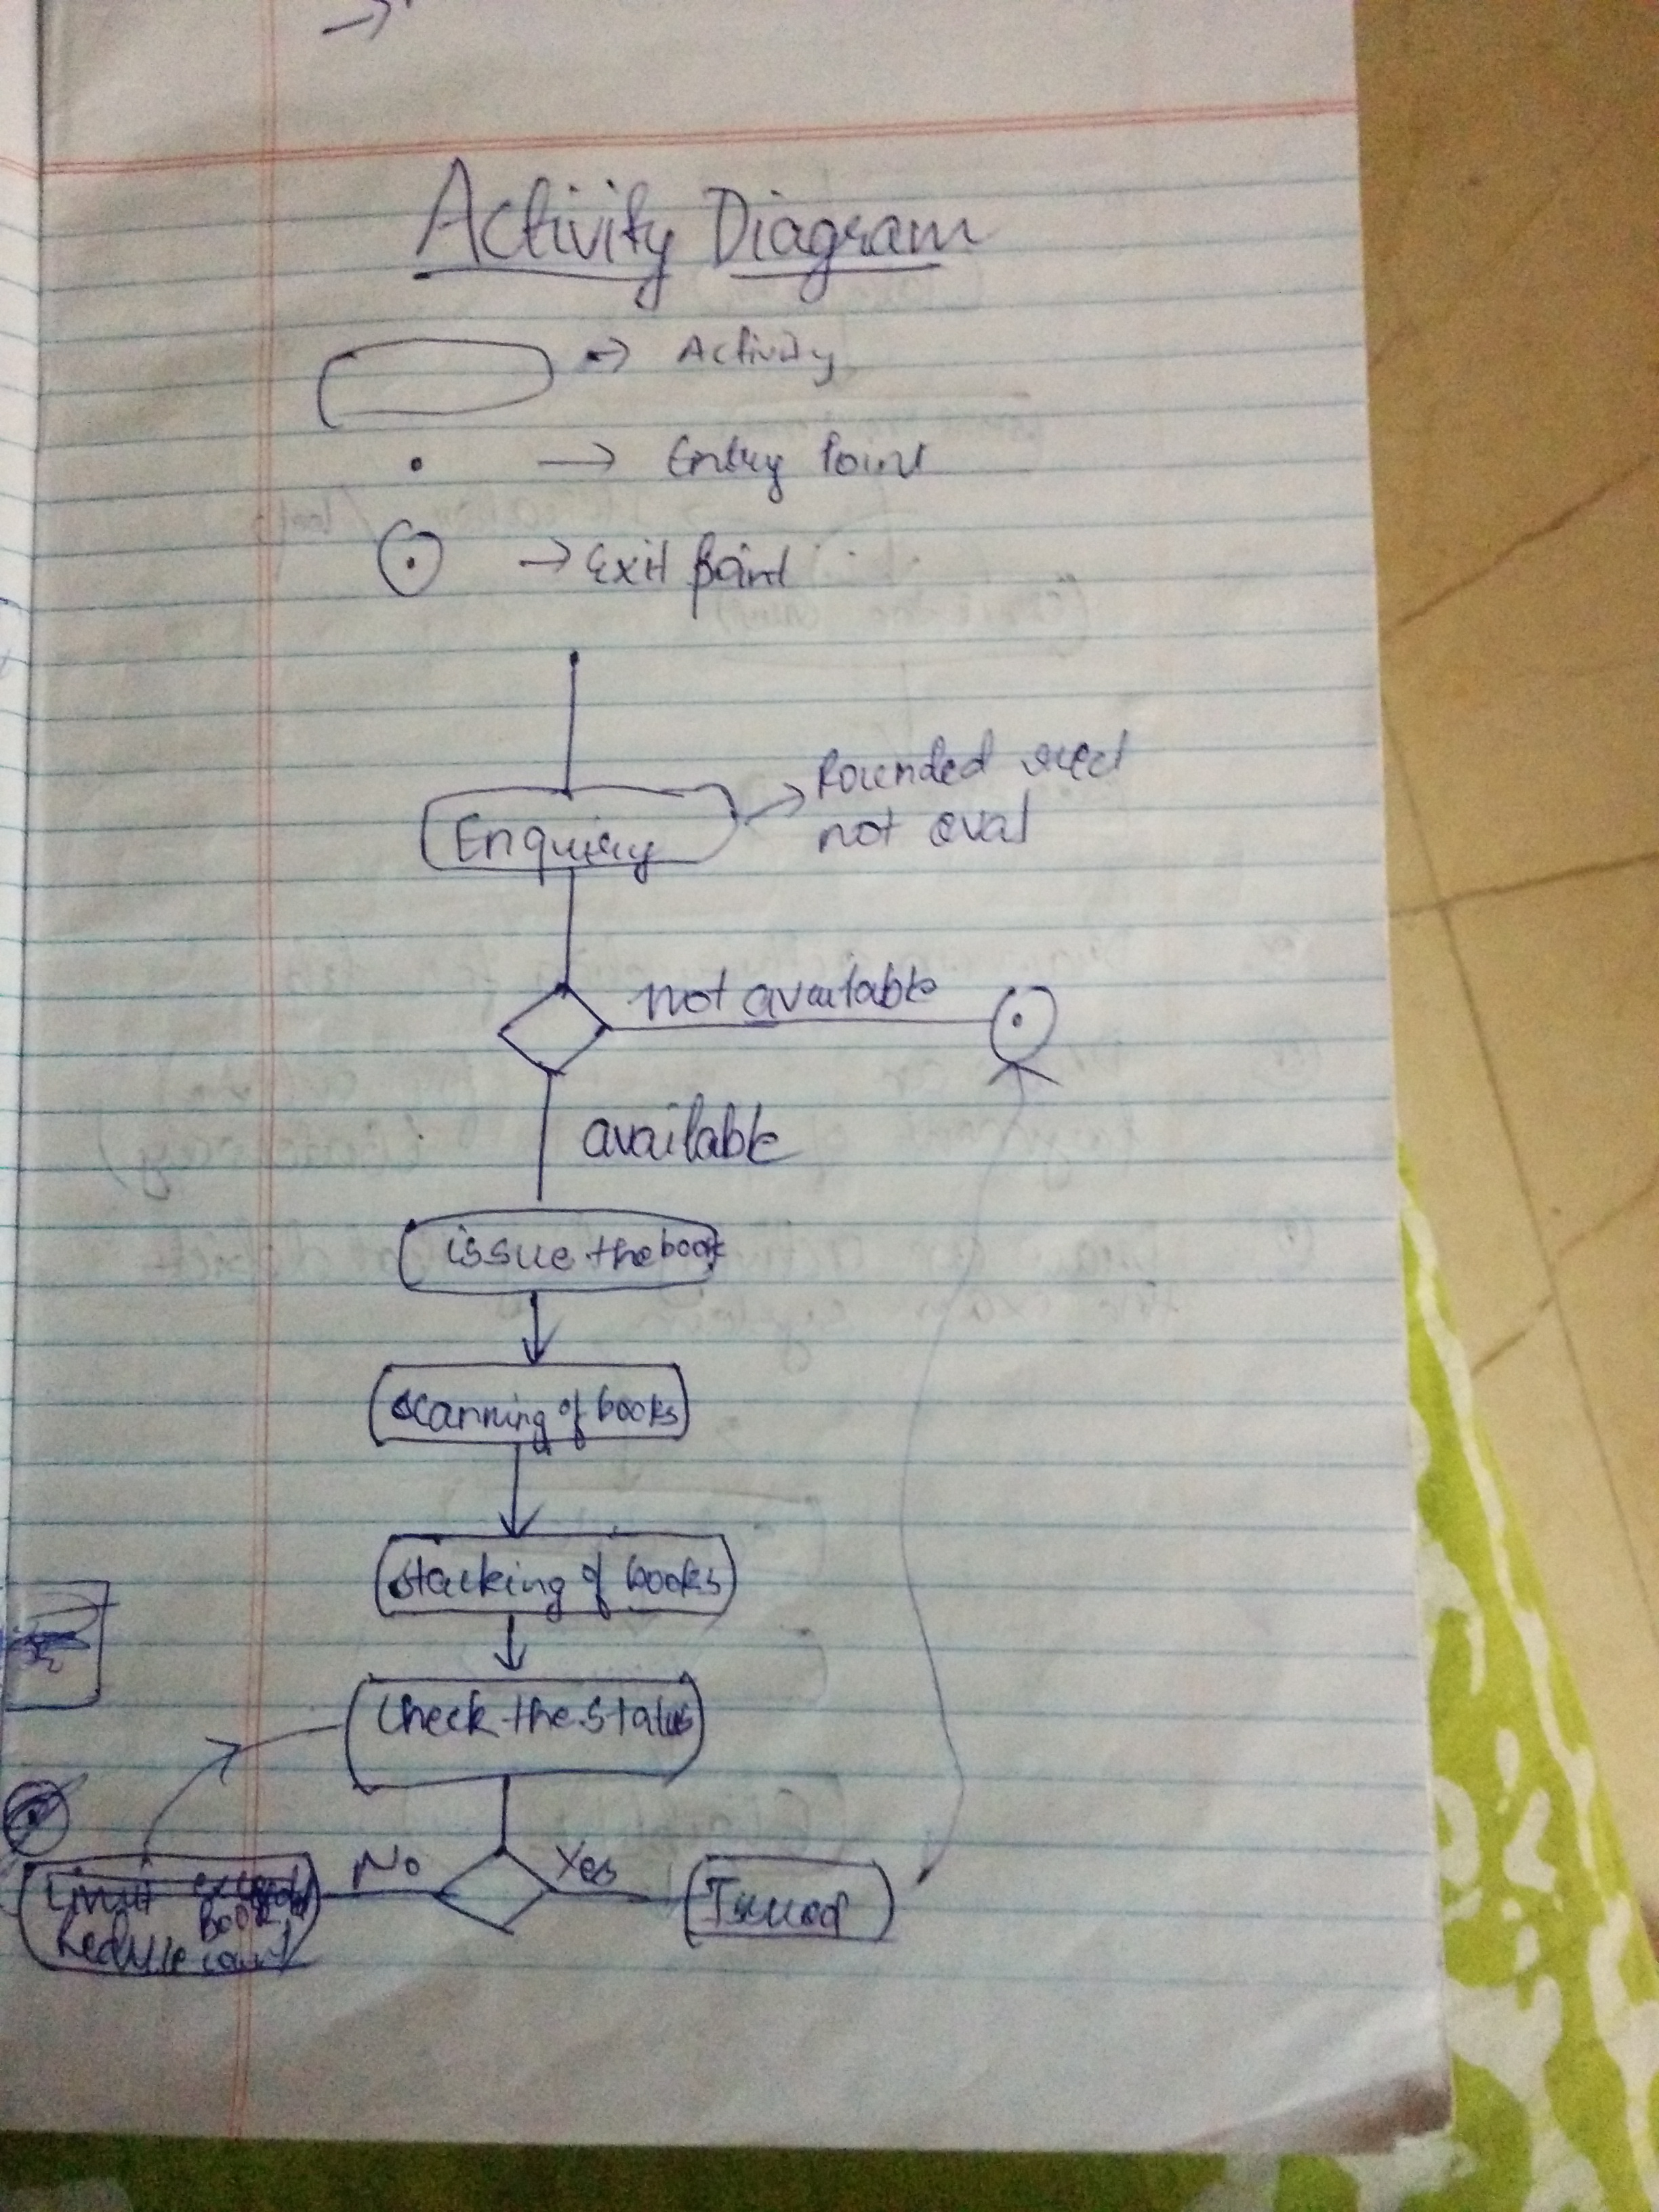 Activity Diagram
→ Activity
→ Entry Point
→ Exit Point
Rounded rect
Enquiry
not oval
not available
available
issue the book
scanning of books
stacking of books
Check the status
No
Yes
Limit exceed
Issued
Book
Reduce count